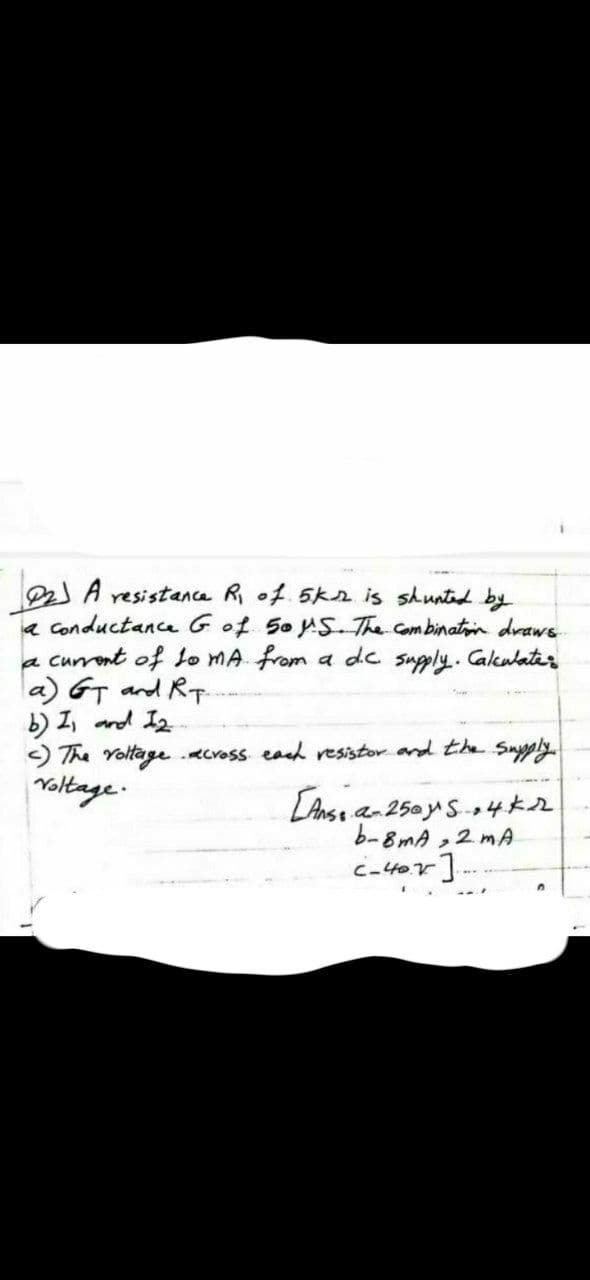 Q2) A resistance R₁ of 5kΩ is shunted by
a conductance G of 50 μS. The combination draws
a current of 10 mA from a d.c supply. Calculate:
a) G_T and R_T
b) I₁ and I₂
c) The voltage across each resistor and the supply
voltage.
[Ans: a- 250 μS, 4 kΩ
b- 8mA, 2 mA
c- 40 v]